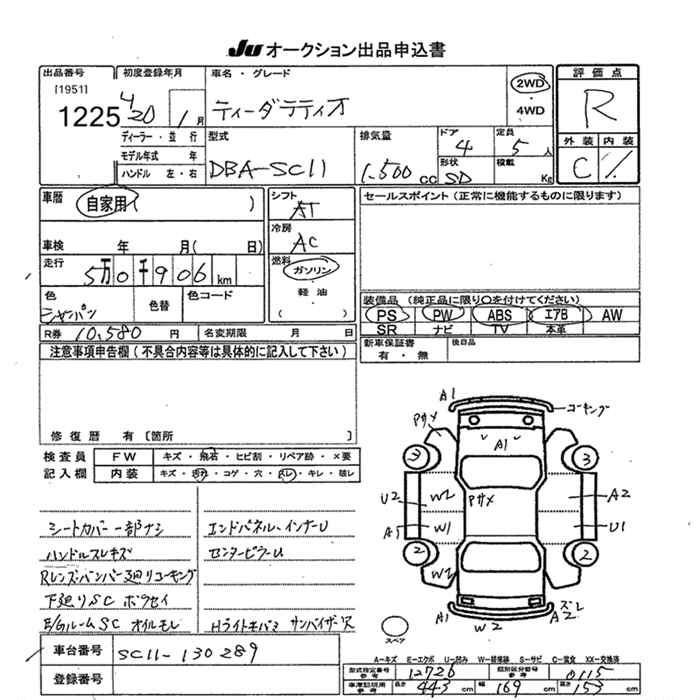 JU オークション出品申込書
出品番号 初度登録年月 車名・グレード 評価点
[1951]
1225 20 1月 ティーダラティオ 2WD・4WD R
ディーラー・並行 型式 排気量 ドア 定員 外装 内装
モデル年式 年 4 5人
ハンドル 左・右 DBA-SC11 1.500cc 形状 SD 積載 Kg C
車暦 自家用( ) シフト AT セールスポイント(正常に機能するものに限ります)
冷房 AC
車検 年 月( 日)
走行 5万0千906km 燃料 ガソリン・軽油
色 シャンパン 色替 色コード 装備品(純正品に限り○を付けてください)
PS PW ABS エアB AW
SR ナビ TV 本革
R券 10,580円 名変期限 月 日 新車保証書 有・無 後日品
注意事項申告欄(不具合内容等は具体的に記入して下さい)
修復歴 有 [箇所 ]
検査員 FW キズ・飛石・ヒビ割・リペア跡・×要
記入欄 内装 キズ・汚れ・コゲ・穴・スレ・キレ・破レ
A1 コーキング
Pサメ A1
3 3
U2 W2 Pサメ A2
W1 U1
2 2
W2
A1 W2 スレ A2
スペア
シートカバー一部ナシ エンドパネル、インナーU
ハンドルスレキズ センターピラーU
Rレンズ・バンパー廻りコーキング
下廻りSC ボウセイ
E/GルームSC オイルモレ Hライトキバミ サンバイザーR
A-キズ E-エクボ U-凹み W-補修跡 S-サビ C-腐食 XX-交換済
車台番号 SC11-130289 型式指定番号 12726 類別区分番号 0115
登録番号 車庫証明用参考 長さ 443cm 幅 169cm 高さ 153cm